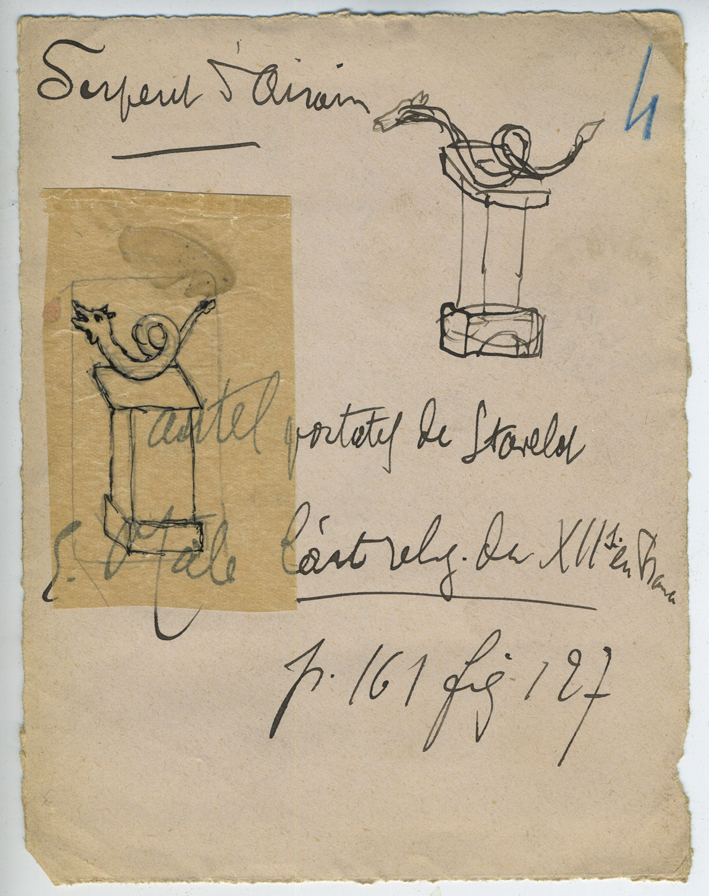 Serpent d'Airain
4
autel portatif de Stavelot
E. Mâle L'art relig. du XIIe s. en France
p. 161 fig. 127